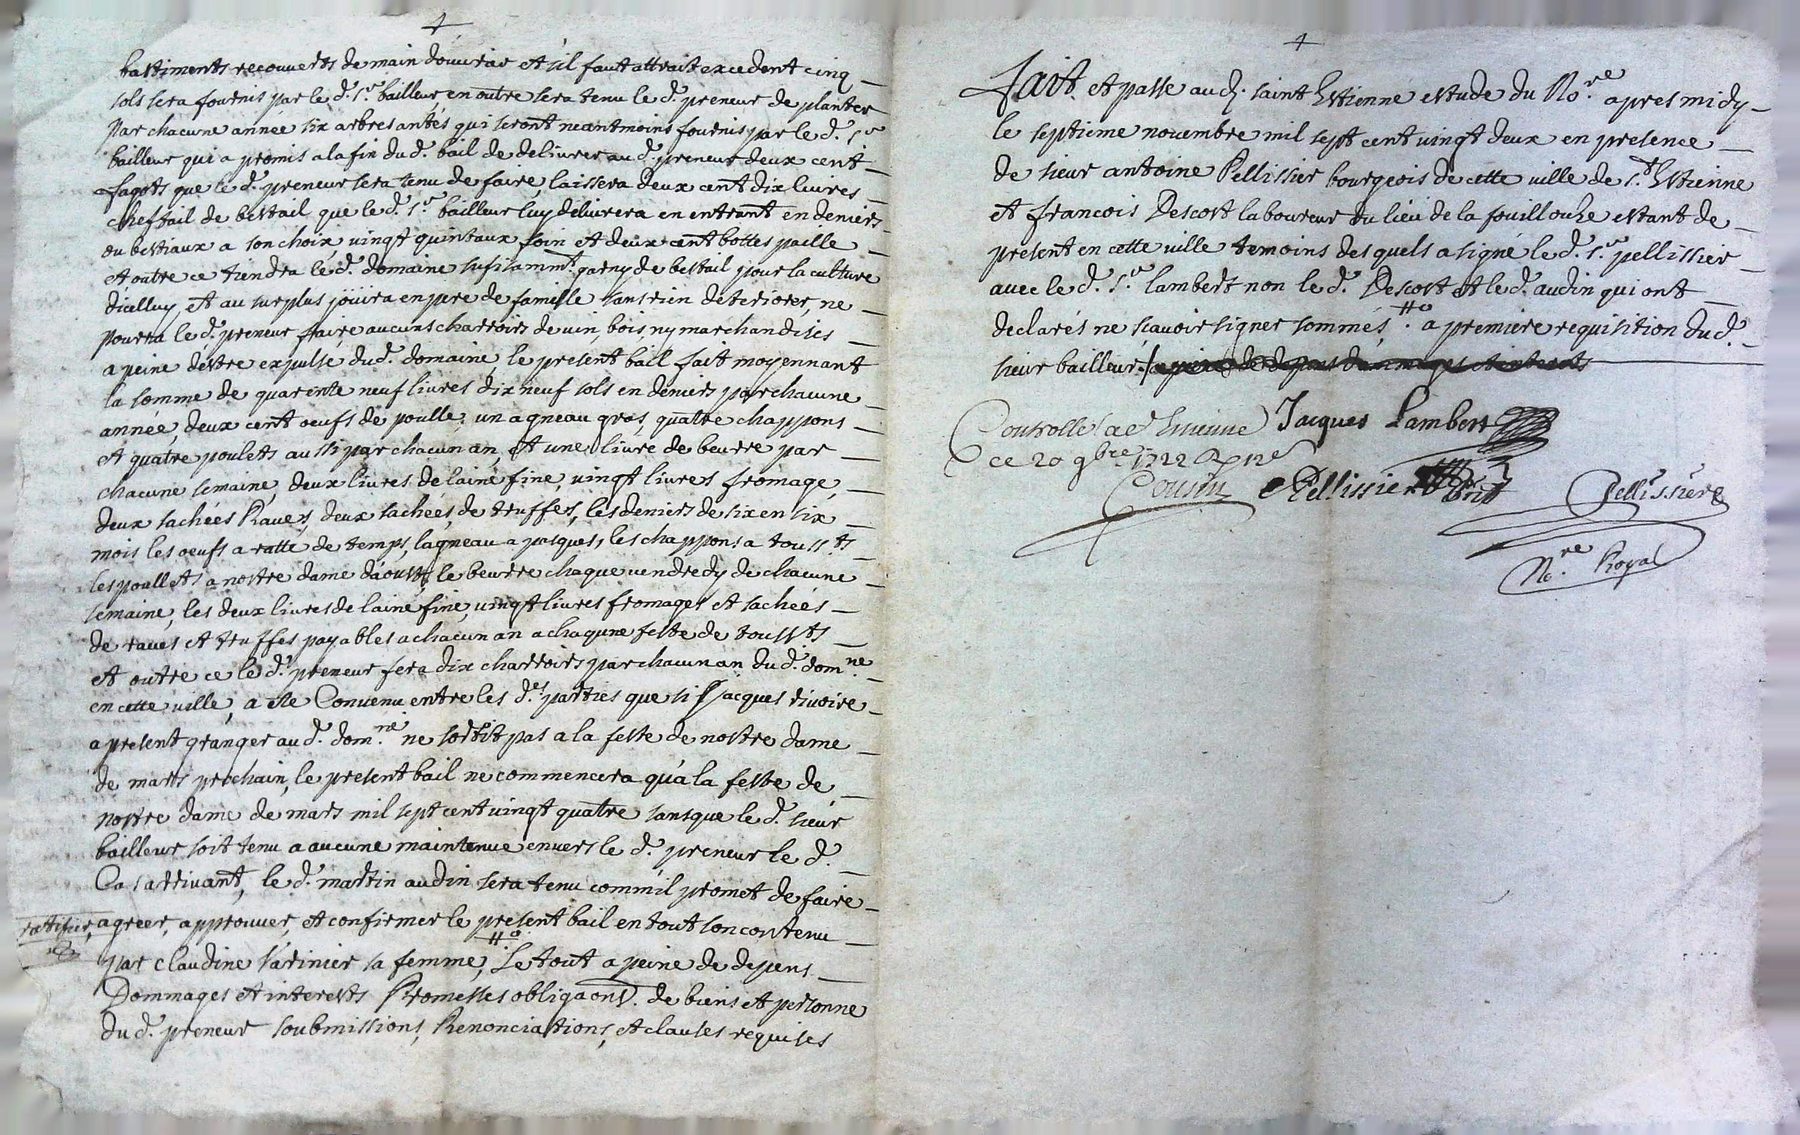 bastiments recouverts de main douvrier et s'il faut attrait excedent cinq
sols sera fournis par le d. Sr bailleur, en outre sera tenu le d. preneur de planter
par chacune année six arbres antés, qui seront neantmoins fournis par le d. Sr
bailleur qui a promis a la fin du d. bail de delivrer au d. preneur deux cent
fagots que le d. preneur sera tenu de faire, laissera deux cent dix livres
cheftail de bestail que le d. Sr bailleur luy delivrera en entrant en deniers
ou bestiaux a son choix vingt quintaux foin et deux cent bottes paille
et outre ce tiendra le d. domaine sufisammt. garny de bestail pour la culture
dicelluy, et au surplus jouira en pere de famille sans rien deteriorer, ne
pourra le d. preneur faire aucuns charroirs de vin, bois, ny marchandises
a peine destre expulse du d. domaine, le present bail fait moyennant
la somme de quarente neuf livres dix neuf sols en deniers par chacune
année, deux cent oeufs de poulle, un agneau gras, quatre chappons
et quatre poulets aussi par chacun an, et une livre de beurre par
chacune semaine, deux livres de laine fine, vingt livres fromage,
deux sachées Raves, deux sachées de truffes, les deniers de six en six
mois les oeufs a ratte de temps, lagneau a pasques, les chappons a toussts
les poullets a nostre dame daoust, le beurre chaque vendredy de chacune
semaine, les deux livres de laine fine, vingt livres fromages et sachées
de raves et truffes payables a chacun an a chaqune feste de toussts
et outre ce le d. preneur fera dix charroirs par chacun an du d. domne
en cette ville, a ete Convenu entre les des parties que si Jacques rivoire
a present granger au d. domne ne sortit pas a la feste de nostre dame
de mars prochain, le present bail ne commencera qu'a la feste de
nostre dame de mars mil sept cent vingt quatre sans que le d. sieur
bailleur soit tenu a aucune maintenue envers le d. preneur le d.
Cas arrivant, le d. martin audin sera tenu comm'il promet de faire
ratifier, agreer, approuver, et confirmer le present bail en tout son contenu
par claudine sarinier sa femme, Le tout a peine de depens
Dommages et interests Promesses obligaons. de biens et personne
du d. preneur soubmissions, Renonciations, et clauses requises
Fait et passe au d. saint Estienne estude du Nore apres midy
le septieme novembre mil sept cent vingt deux en presence
de sieur antoine Pellissier bourgeois de cette ville de St Estienne
et francois Descost laboureur du lieu de la fouillouze estant de
present en cette ville temoins desquels a signé le d. Sr pellissier
avec le d. Sr lambert non le d. Descost et le d. audin qui ont
declarés ne sçavoir signer sommés, a premiere requisition du d.
sieur bailleur a peine de depens dommages et interests
Controlle a St Etienne Jacques Lambert
ce 20 9bre 1722
Cousin Pellissier Pellissier
Nore Royal